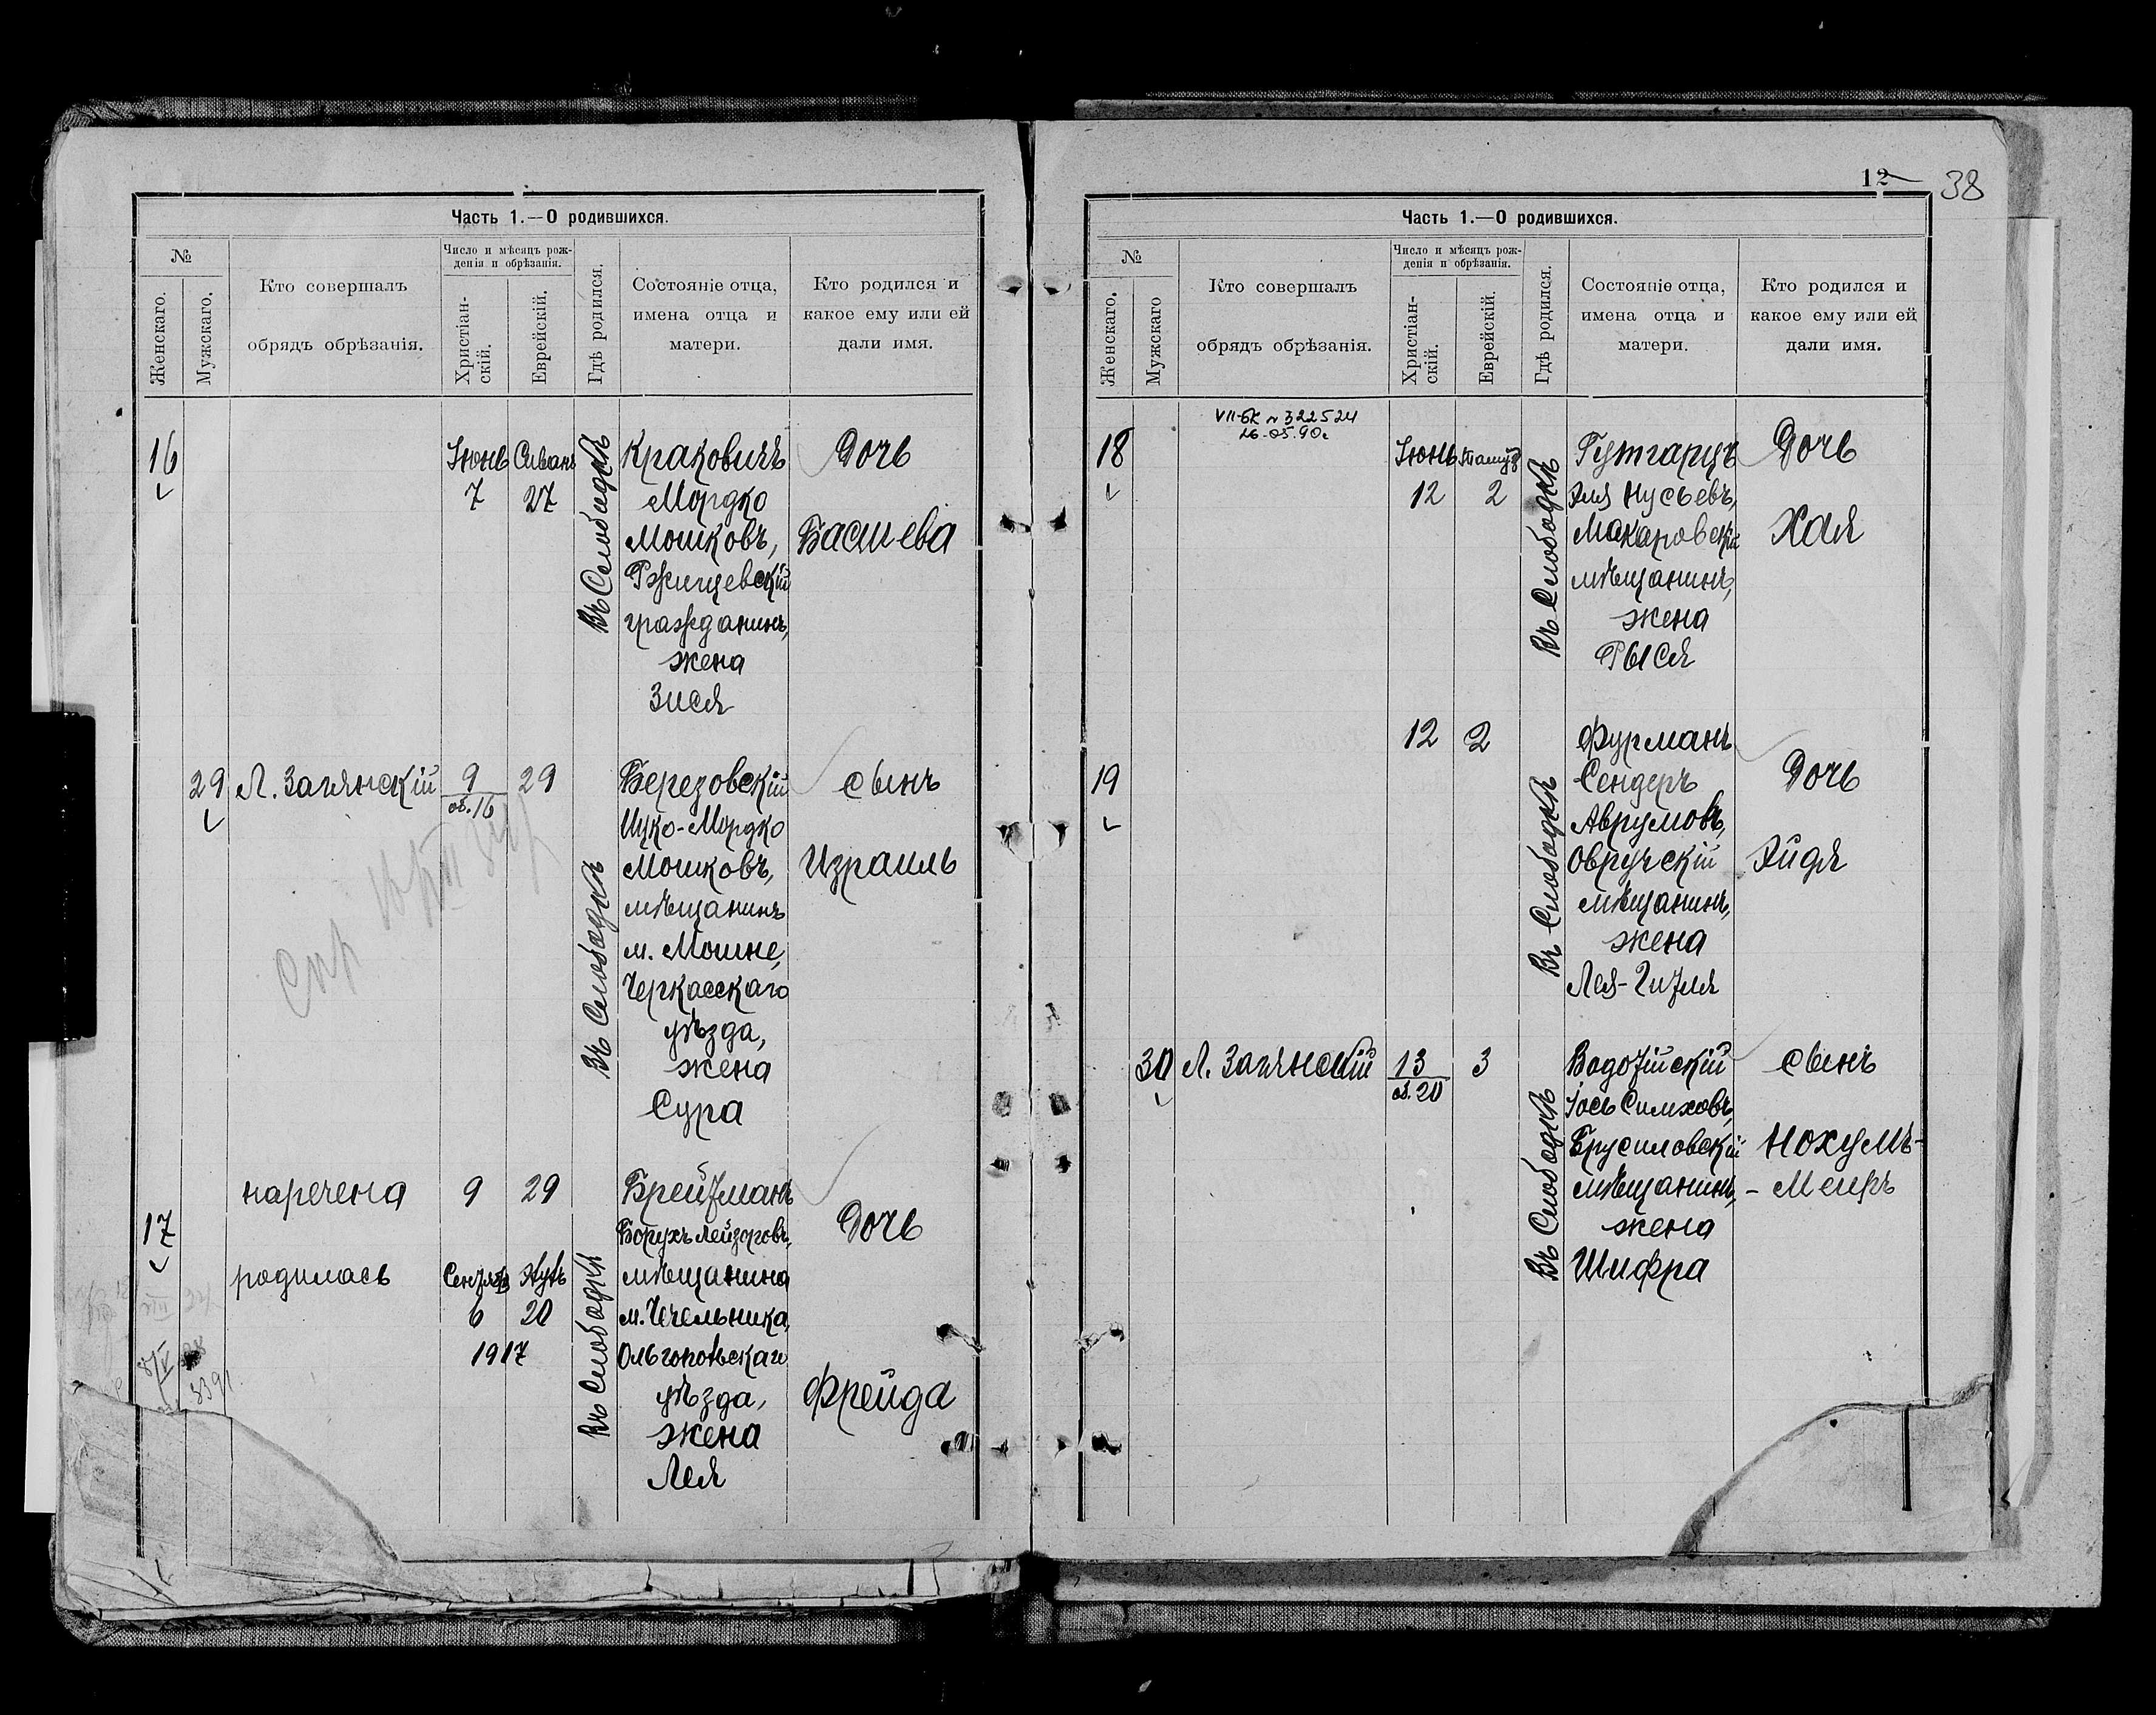 Часть 1.—О родившихся.
№
Женскаго.
Мужскаго.
Кто совершалъ
обрядъ обрѣзанія.
Число и мѣсяцъ рож-
денія и обрѣзанія.
Христіан-
скій.
Еврейскій.
Гдѣ родился.
Состояніе отца,
имена отца и
матери.
Кто родился и
какое ему или ей
дали имя.
16
Іюнь Сиванъ
7 27
Въ Слободкѣ
Краковичъ
Мордко
Мошковъ,
Ржищевскій
гражданинъ,
жена
Зися
Дочь
Басшева
29 Л. Заглянскій
9 29
об. 16
Въ Слободкѣ
Березовскій
Ицко-Мордко
Мошковъ,
мѣщанинъ
м. Мошне,
Черкасскаго
уѣзда,
жена
Сура
сынъ
Израиль
17
наречена 9 29
родилась
6 20
1917
Въ Слободкѣ
Брейтманъ
Борухъ Лейзоровъ,
мѣщанина
м. Чечельника,
Ольгопольскаго
уѣзда,
жена
Лея
Дочь
Фрейда
12
38
Часть 1.—О родившихся.
№
Женскаго.
Мужскаго
Кто совершалъ
обрядъ обрѣзанія.
Число и мѣсяцъ рож-
денія и обрѣзанія.
Христіан-
скій.
Еврейскій.
Гдѣ родился.
Состояніе отца,
имена отца и
матери.
Кто родился и
какое ему или ей
дали имя.
VII-БК № 322524
26.05.90г
18
Іюнь Тамуз
12 2
Въ Слободкѣ
Гутгарцъ
Эля Нусьевъ,
Макаровскій
мѣщанинъ,
жена
Рыся
Дочь
Хая
19
12 2
Въ Слободкѣ
Фурманъ
Сендеръ
Аврумовъ,
Овручскій
мѣщанинъ,
жена
Лея-Гитля
Дочь
Эйдя
30 Л. Заглянскій
13 3
об. 20
Въ Слободкѣ
Водотійскій
Іось Симховъ,
Брусиловскій
мѣщанинъ,
жена
Шифра
сынъ
Нохумъ-
-Меиръ